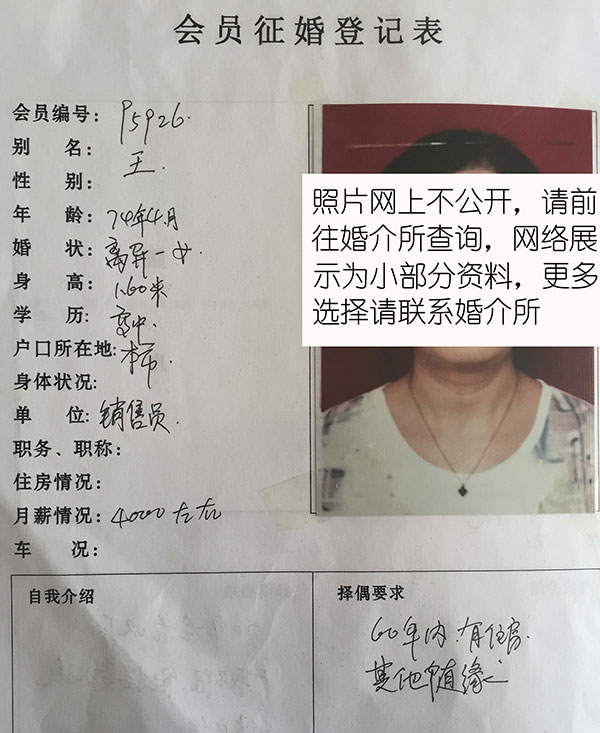 会员征婚登记表
会员编号: P5926.
别 名: 王.
性 别:
年 龄: 74年4月
婚 状: 离异一女
身 高: 1.60米
学 历: 高中.
户口所在地: 本市.
身体状况:
单 位: 销售员.
职务、职称:
住房情况:
月薪情况: 4000左右
车 况:
照片网上不公开，请前
往婚介所查询，网络展
示为小部分资料，更多
选择请联系婚介所
自我介绍
择偶要求
60年内.有住房.
其他随缘